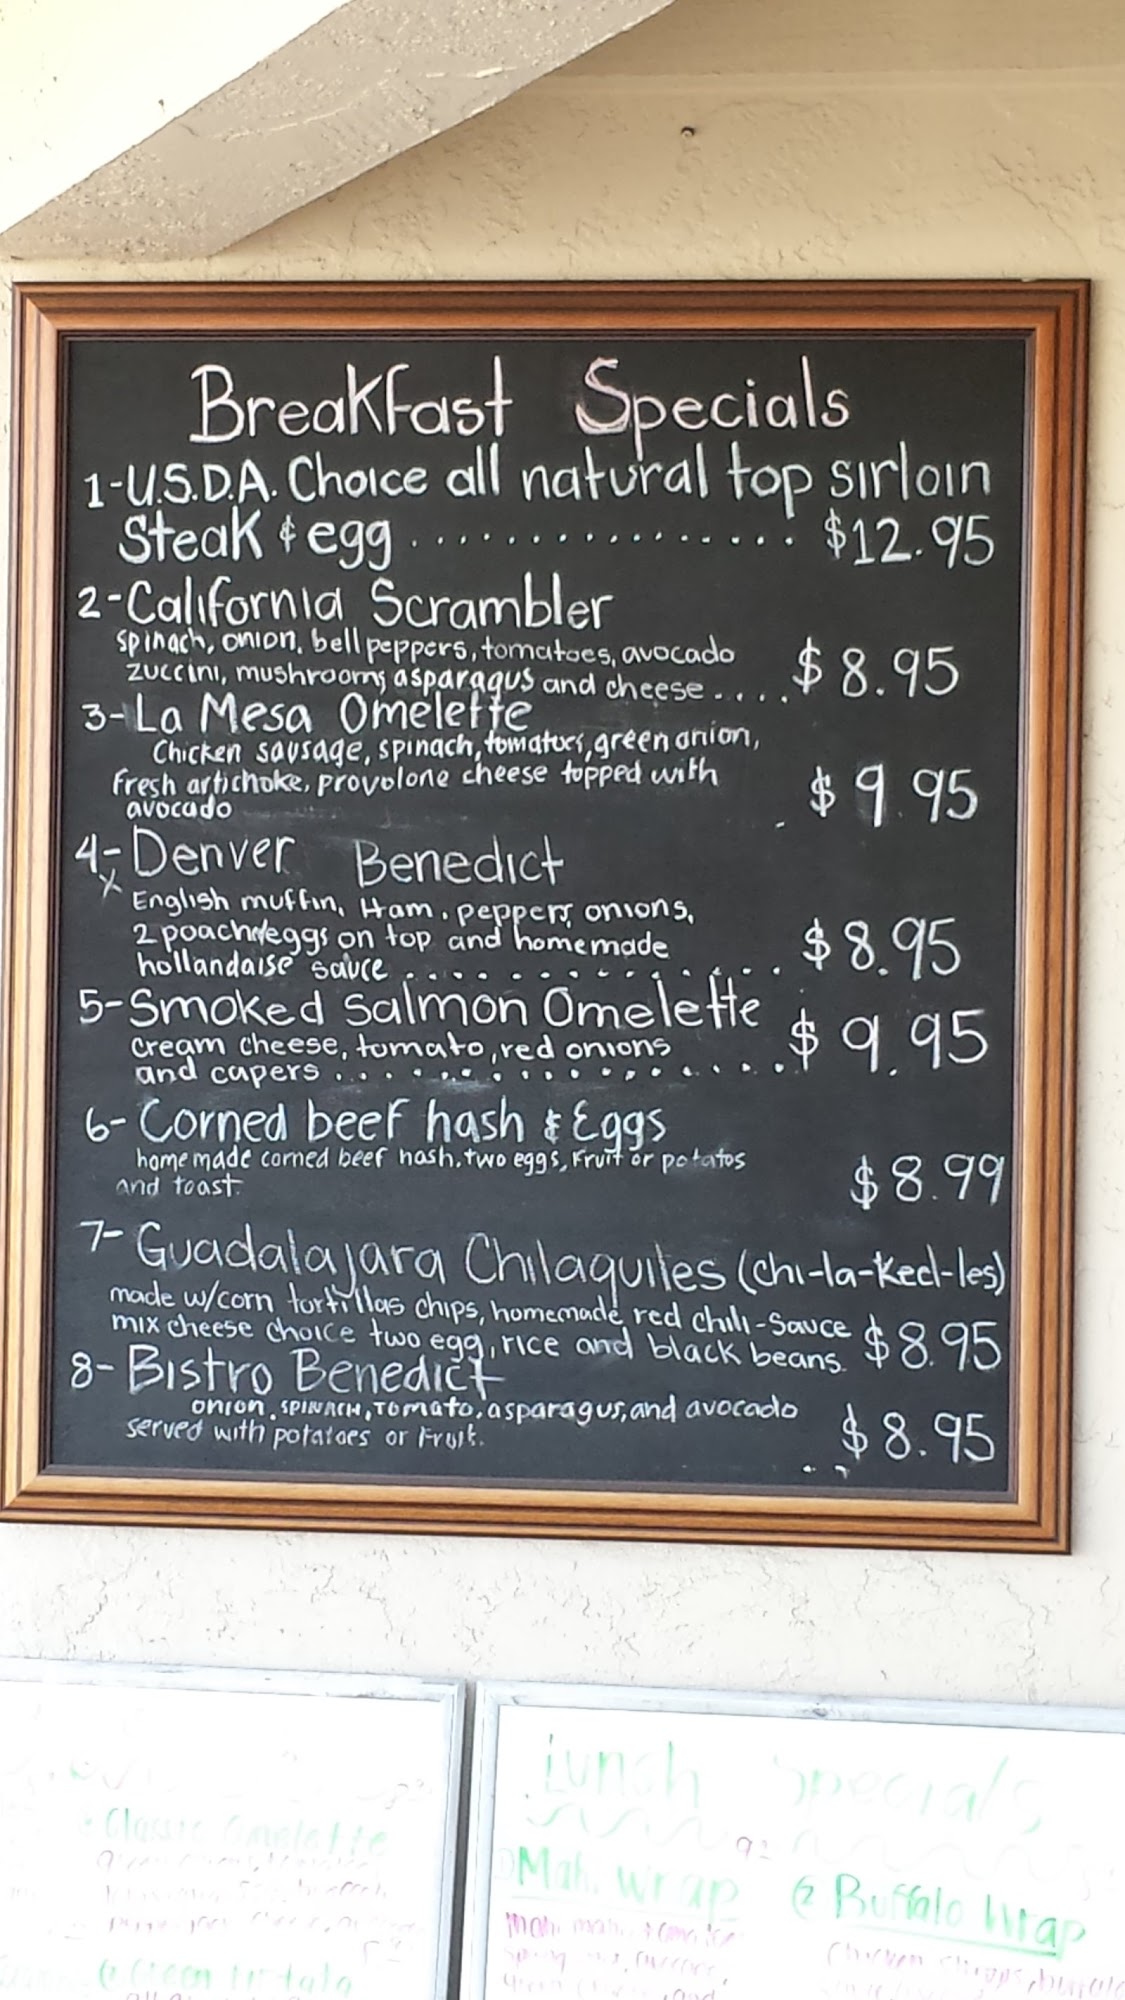 Breakfast Specials
1-U.S.D.A. Choice all natural top sirloin
Steak & egg ................. $12.95
2-California Scrambler
spinach, onion, bell peppers, tomatoes, avocado
zuccini, mushrooms asparagus and cheese .... $8.95
3-La Mesa Omelette
Chicken sausage, spinach, tomatoes, green onion,
Fresh artichoke, provolone cheese topped with
avocado $9.95
4-Denver Benedict
x English muffin, Ham, peppers, onions,
2 poached eggs on top and homemade
hollandaise sauce ................ $8.95
5-Smoked Salmon Omelette
cream cheese, tomato, red onions
and capers ................ $9.95
6-Corned beef hash & Eggs
homemade corned beef hash, two eggs, Fruit or potatos
and toast. $8.99
7-Guadalajara Chilaquiles (chi-la-keel-les)
made w/corn tortillas chips, homemade red chili-Sauce
mix cheese choice two egg, rice and black beans. $8.95
8-Bistro Benedict
onion, SPINACH, Tomato, asparagus, and avocado
served with potatoes or Fruit. $8.95
Classic Omelette
Lunch Specials
Mahi wrap
Buffalo Wrap